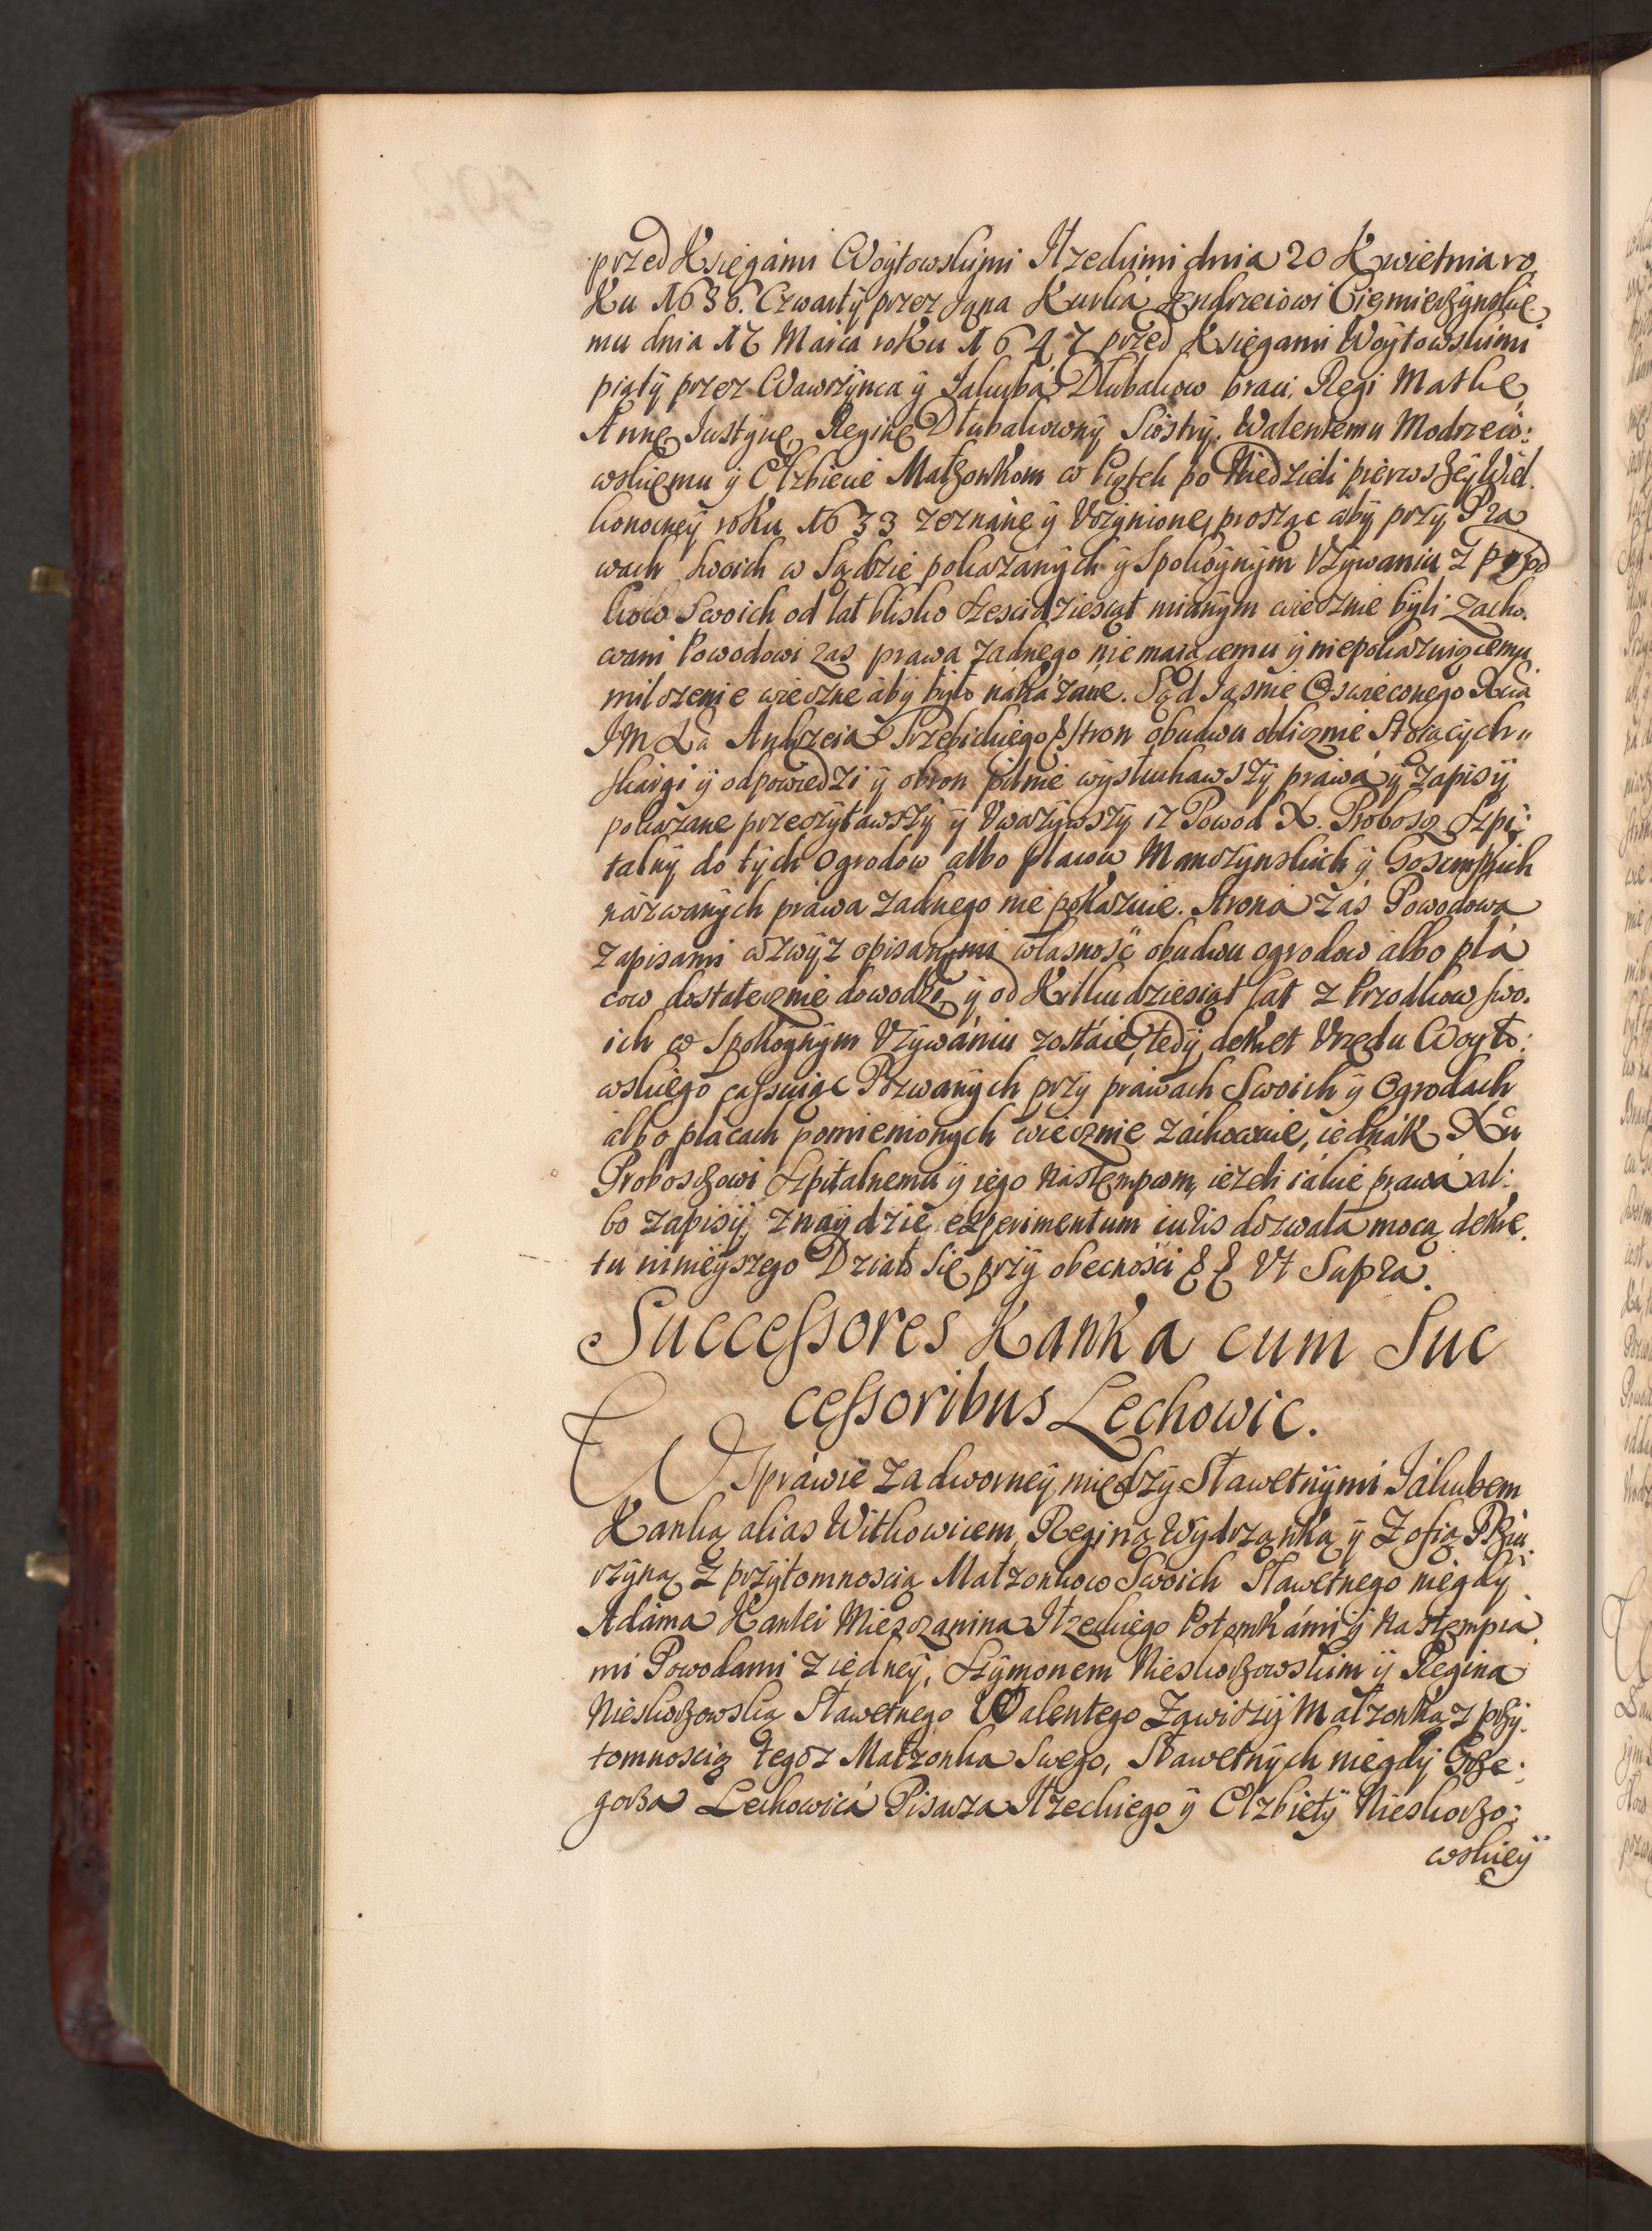 przed Księgami Woytowskimi Iłzeckimi dnia 20 Kwietnia ro
ku 1636. Czwarty przez Jana Kurka Jendrzeiowi Ciemierzynskie
mu dnia 17 Marca roku 1647 przed Księgami Woytowskimi
piąty przez Wawrzynca y Jakuba Dlubakow braci, Regi Matkę
Annę Justynę Reginę Dlubakowny Siostry, Walentemu Modrzew:
wskiemu y Elzbiecie Małzonkom w Piątek po Niedzieli pierwszey Wiel
konocney roku 1633 zeznane y Uczynione, prosząc aby przy Pra
wach swoich w Sądzie pokazanych y Spokoynym Uzywaniu z przod
kow Swoich od lat blisko szescidziesiąt mianym wiecznie byli zacho.
wani Powodowi zas prawa zadnego nie maiącemu y niepokazuiącemu
milczenie wieczne aby było nakazane. Sąd Jasnie Oswieconego Xcia
JM Xa Andrzeia Trzebickiego & stron obudwu oblicznie Stoiących
skargi y odpowiedzi y obron pilnie wysłuchawszy prawa y zapisy
pokazane przeczytawszy y Uwazywszy iz Powod X. Probosz Szpi:
talny do tych ogrodow albo placow Manczynskich y
nazwanych prawa zadnego nie pokazuie. Strona zas Powodowa
zapisami wzwyz opisanymi własność obudwu ogrodow albo pla
cow dostatecznie dowodzi y od Kilkudziesiąt lat z Przodkow swo.
ich w Spokoynym Uzywaniu zostaie, tedy dekret Urzędu Woyto:
wskiego cassuiąc Pozwanych przy prawach Swoich y Ogrodach
albo placach pomienionych wiecznie zachowuie, iednak Xdu
Proboszczowi Szpitalnemu y iego Nastempcom, iezeli iakie prawa al:
bo zapisy znaydzie experimentum iuris dozwala mocą dekre.
tu ninieyszego Działo się przy obecności & & Vt Supra.
Successores Kanka cum Suc
cessoribus Lechowic.
W Sprawie zadworney między Sławetnymi Jakubem
Kanką alias Witkowicem, Reginą Wydrzanką y Zofią
rzyną z przytomnoscią Małzonkow Swoich Sławetnego niegdy
Adama Kanki Miesczanina Iłzeckiego Potomkami y Nastempca
mi Powodami z iedney, Szymonem Nieskorzowskim y Regina
Nieskorzowską Sławetnego Walentego Zawiszy Małzonką z przy.
tomnoscią tegoz Małzonka Swego, Sławetnych niegdy Grze:
gorza Lechowica Pisarza Iłzeckiego y Elzbiety Nieskorzo:
wskiey